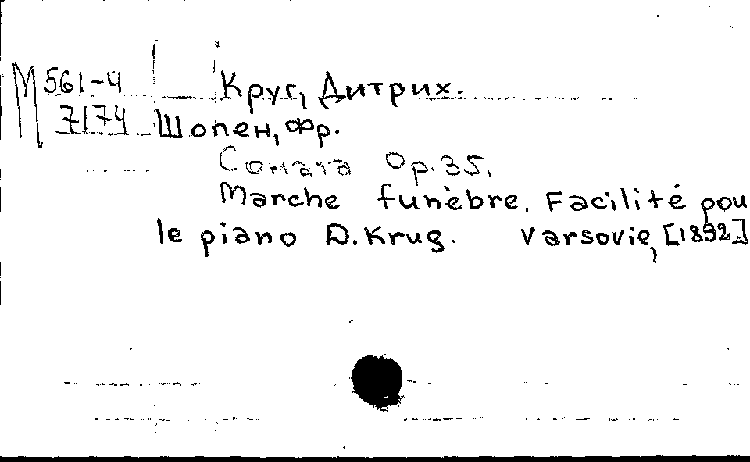 М 561-4 Круг, Дитрих.
7174 Шопен, Фр.
Соната Op.35.
Marche funèbre. Facilité pou
le piano D.Krug. Varsovie, [1892]